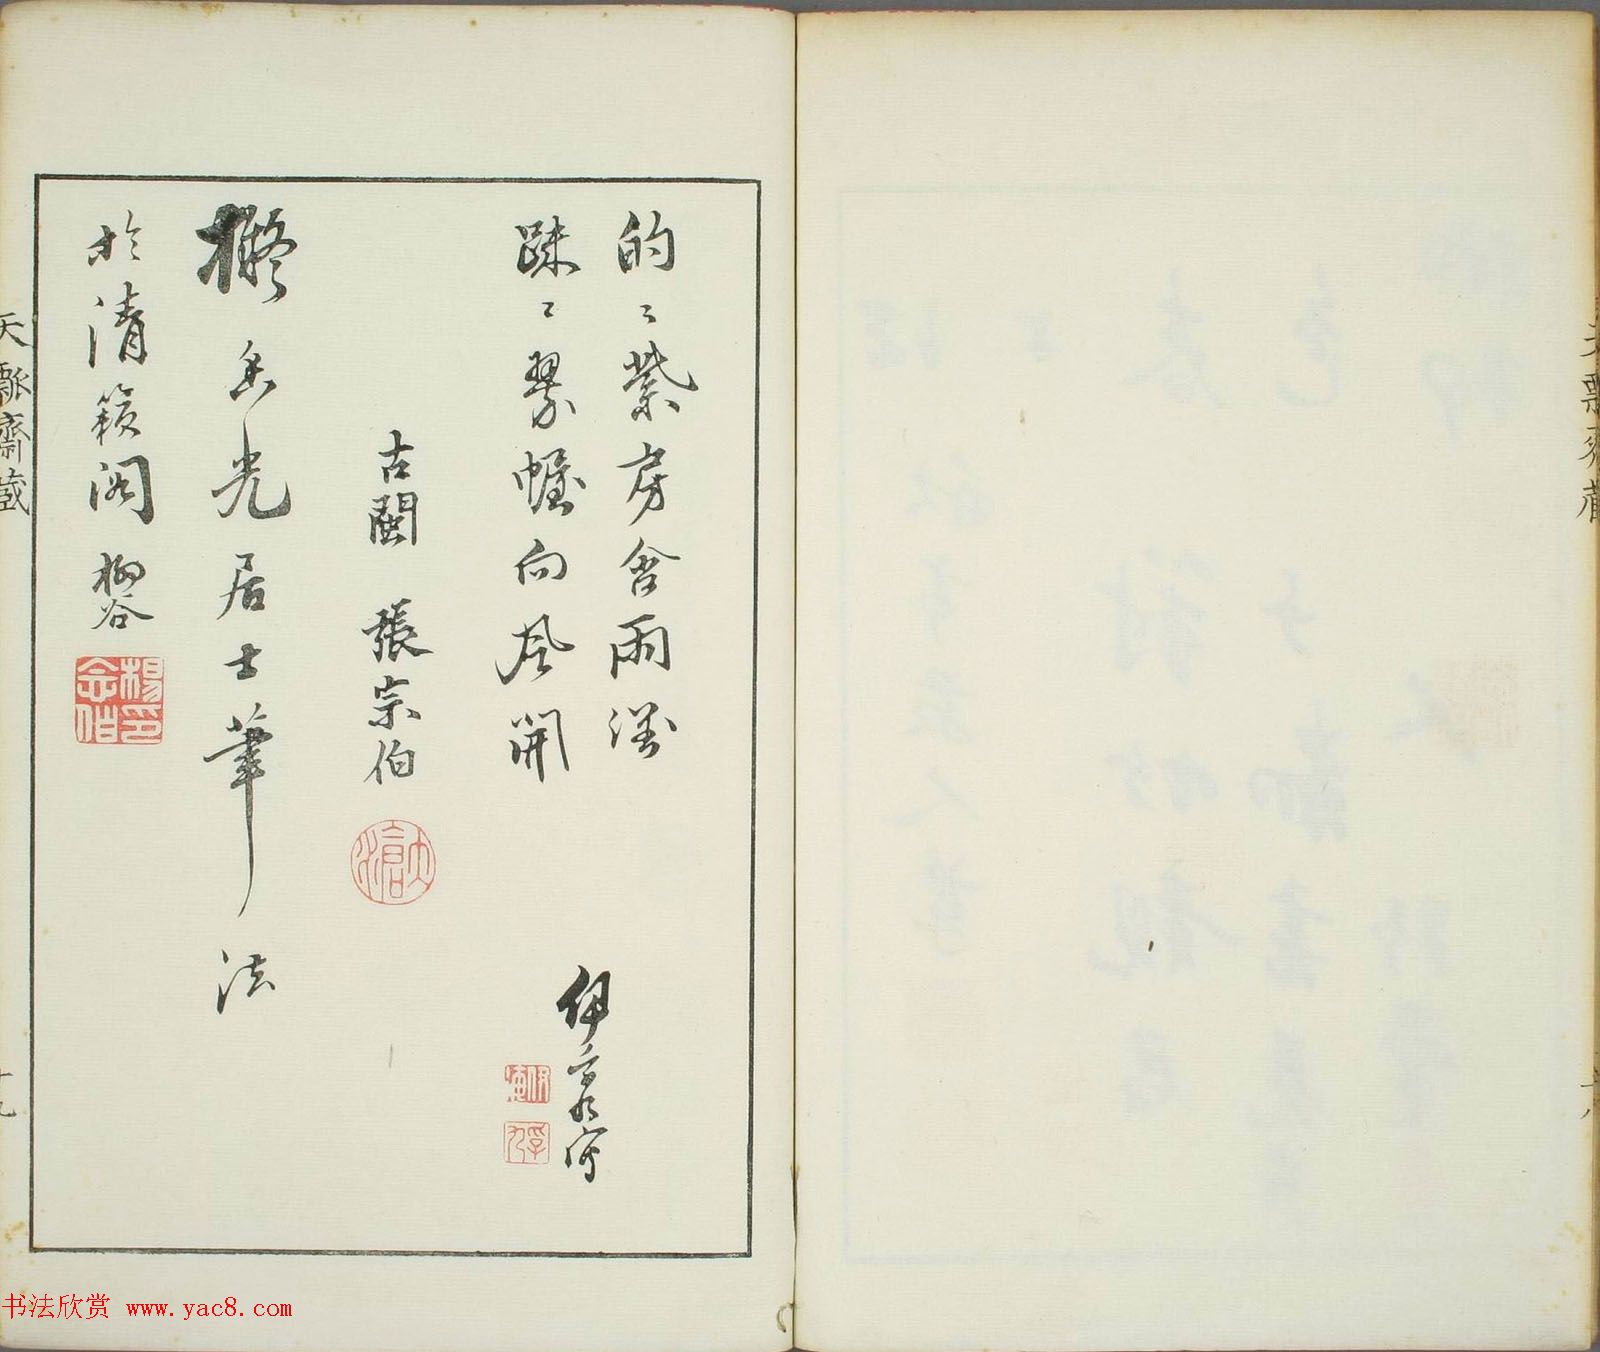 天瓢齋藏
的〻紫房含雨潤
疎〻翠幄向風開
伊
古閩 張宗伯
擬香光居士筆法
於清籟閣 柳谷
楊印念伯
天瓢齋藏
十九
书法欣赏 www.yac8.com